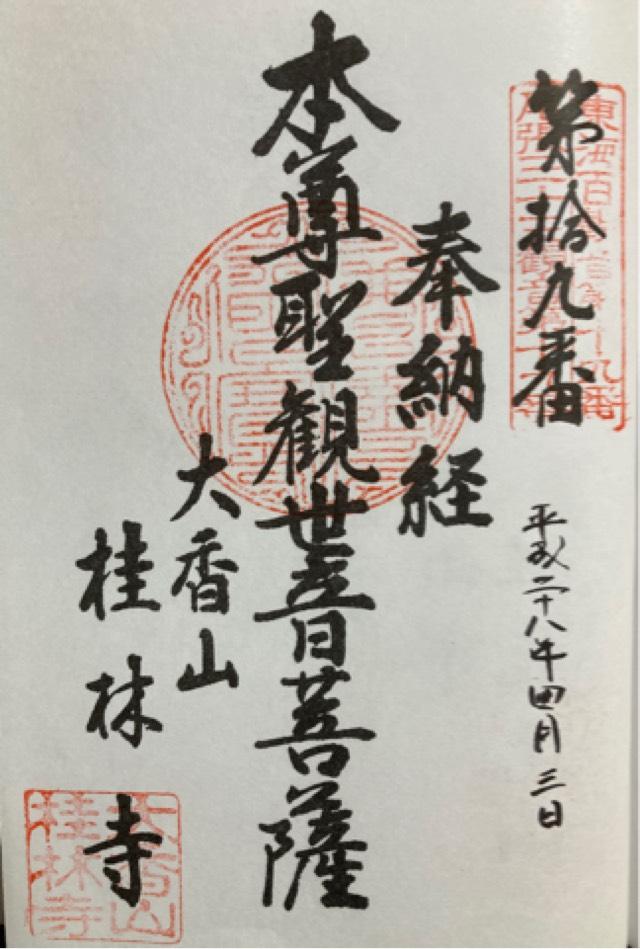 第拾九番
平成二十八年四月三日
奉納経
本尊聖観世音菩薩
大香山
桂林寺
大香山
桂林寺